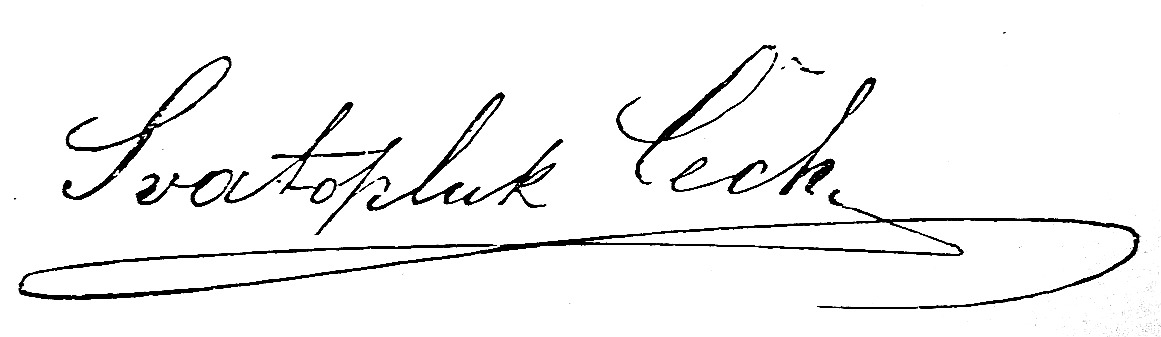 Svatopluk Čech.